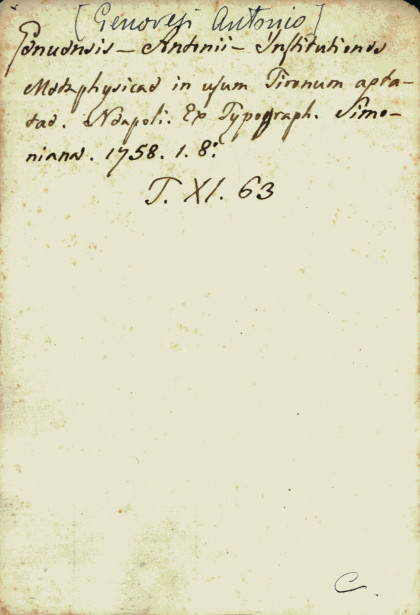 [Genovesi Antonio]
Genuensis - Antonii - Institutiones
Metaphysicae in usum Tironum apta-
tae. Neapoli. Ex Typograph. Simo-
niana. 1758. 1. 8:
T. XI. 63
C.